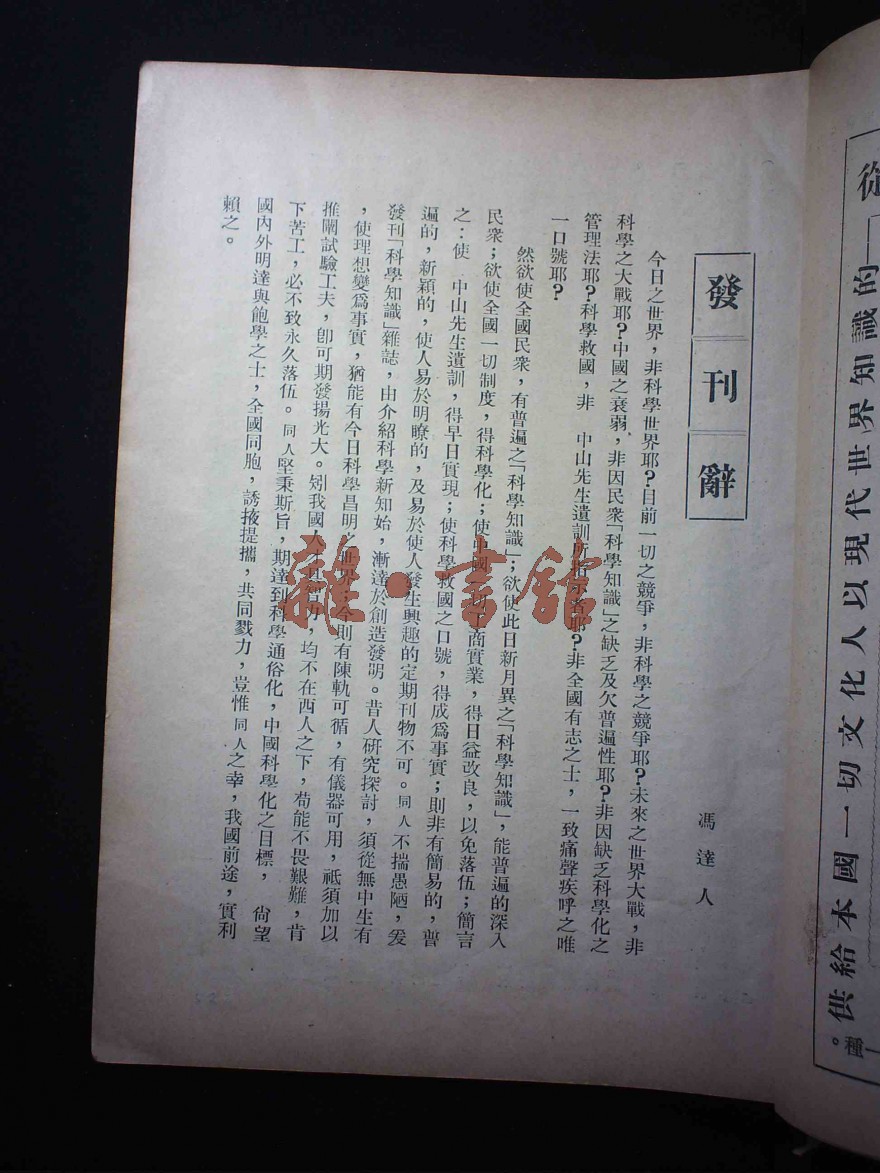 發刊辭
馮達人
今日之世界，非科學世界耶？目前一切之競爭，非科學之競爭耶？未來之世界大戰，非
科學之大戰耶？中國之衰弱，非因民衆「科學知識」之缺乏及欠普遍性耶？非因缺乏科學化之
管理法耶？科學救國，非　中山先生遺訓所指示者耶？非全國有志之士，一致痛聲疾呼之唯
一口號耶？
然欲使全國民衆，有普遍之「科學知識」；欲使此日新月異之「科學知識」，能普遍的深入
民衆；欲使全國一切制度，得科學化；使中國一切工商實業，得日益改良，以免落伍；簡言
之：使　中山先生遺訓，得早日實現；使科學救國之口號，得成爲事實；則非有簡易的，普
遍的，新穎的，使人易於明瞭的，及易於使人發生興趣的定期刊物不可。同人不揣愚陋，爰
發刊「科學知識」雜誌，由介紹科學新知始，漸達於創造發明。昔人研究探討，須從無中生有
，使理想變爲事實，猶能有今日科學昌明之世界；今則有陳軌可循，有儀器可用，祗須加以
推闡試驗工夫，卽可期發揚光大。矧我國人才，均不在西人之下，苟能不畏艱難，肯
下苦工，必不致永久落伍。同人堅秉斯旨，期達到科學通俗化，中國科學化之目標，尙望
國內外明達與飽學之士，全國同胞，誘掖提攜，共同戮力，豈惟同人之幸，我國前途，實利
賴之。
雜·書館
從
的識知界世代現以人化文切一國本給供
種。